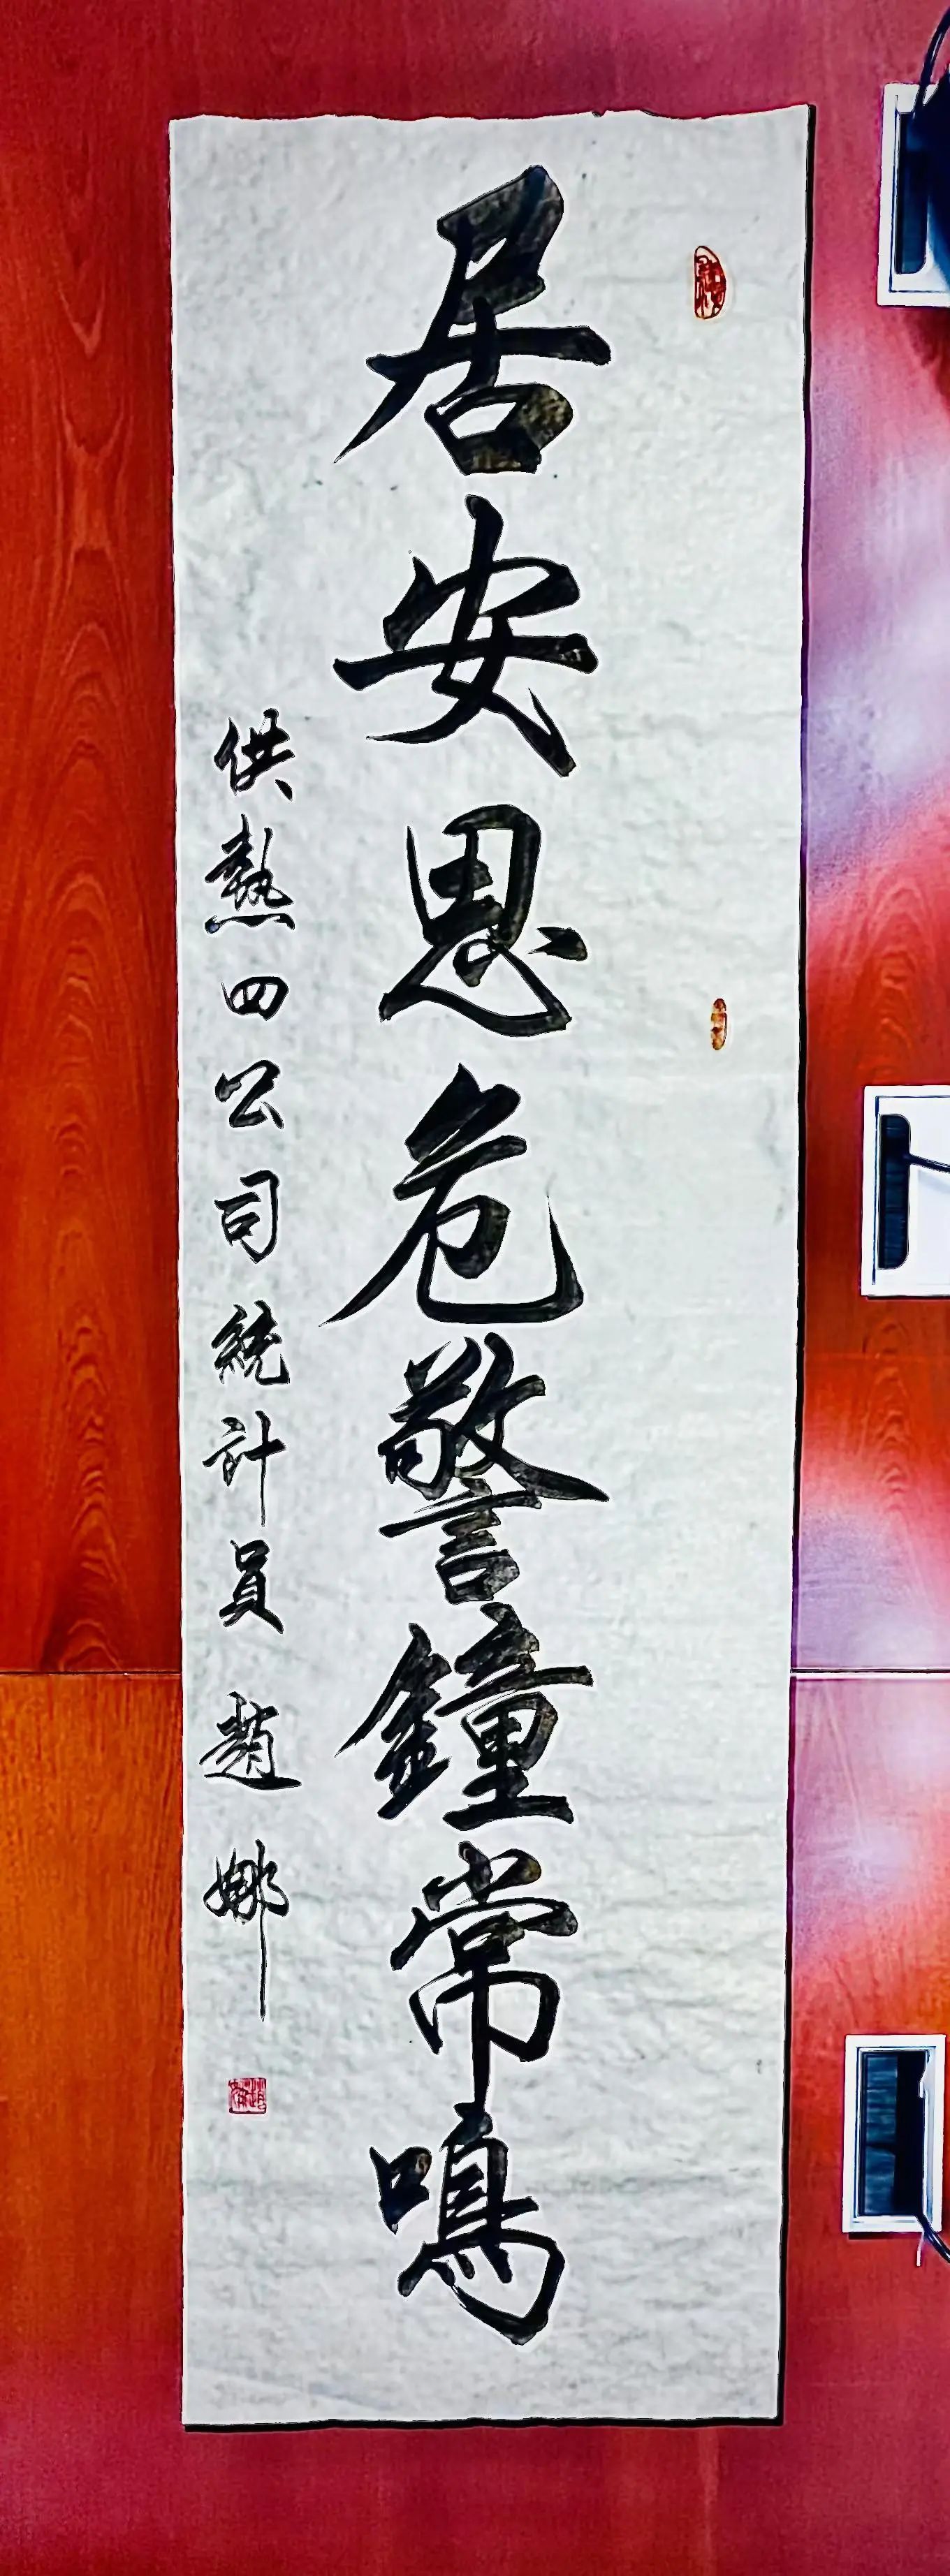 居安思危警鐘常鳴
供熱四公司統計員趙娜